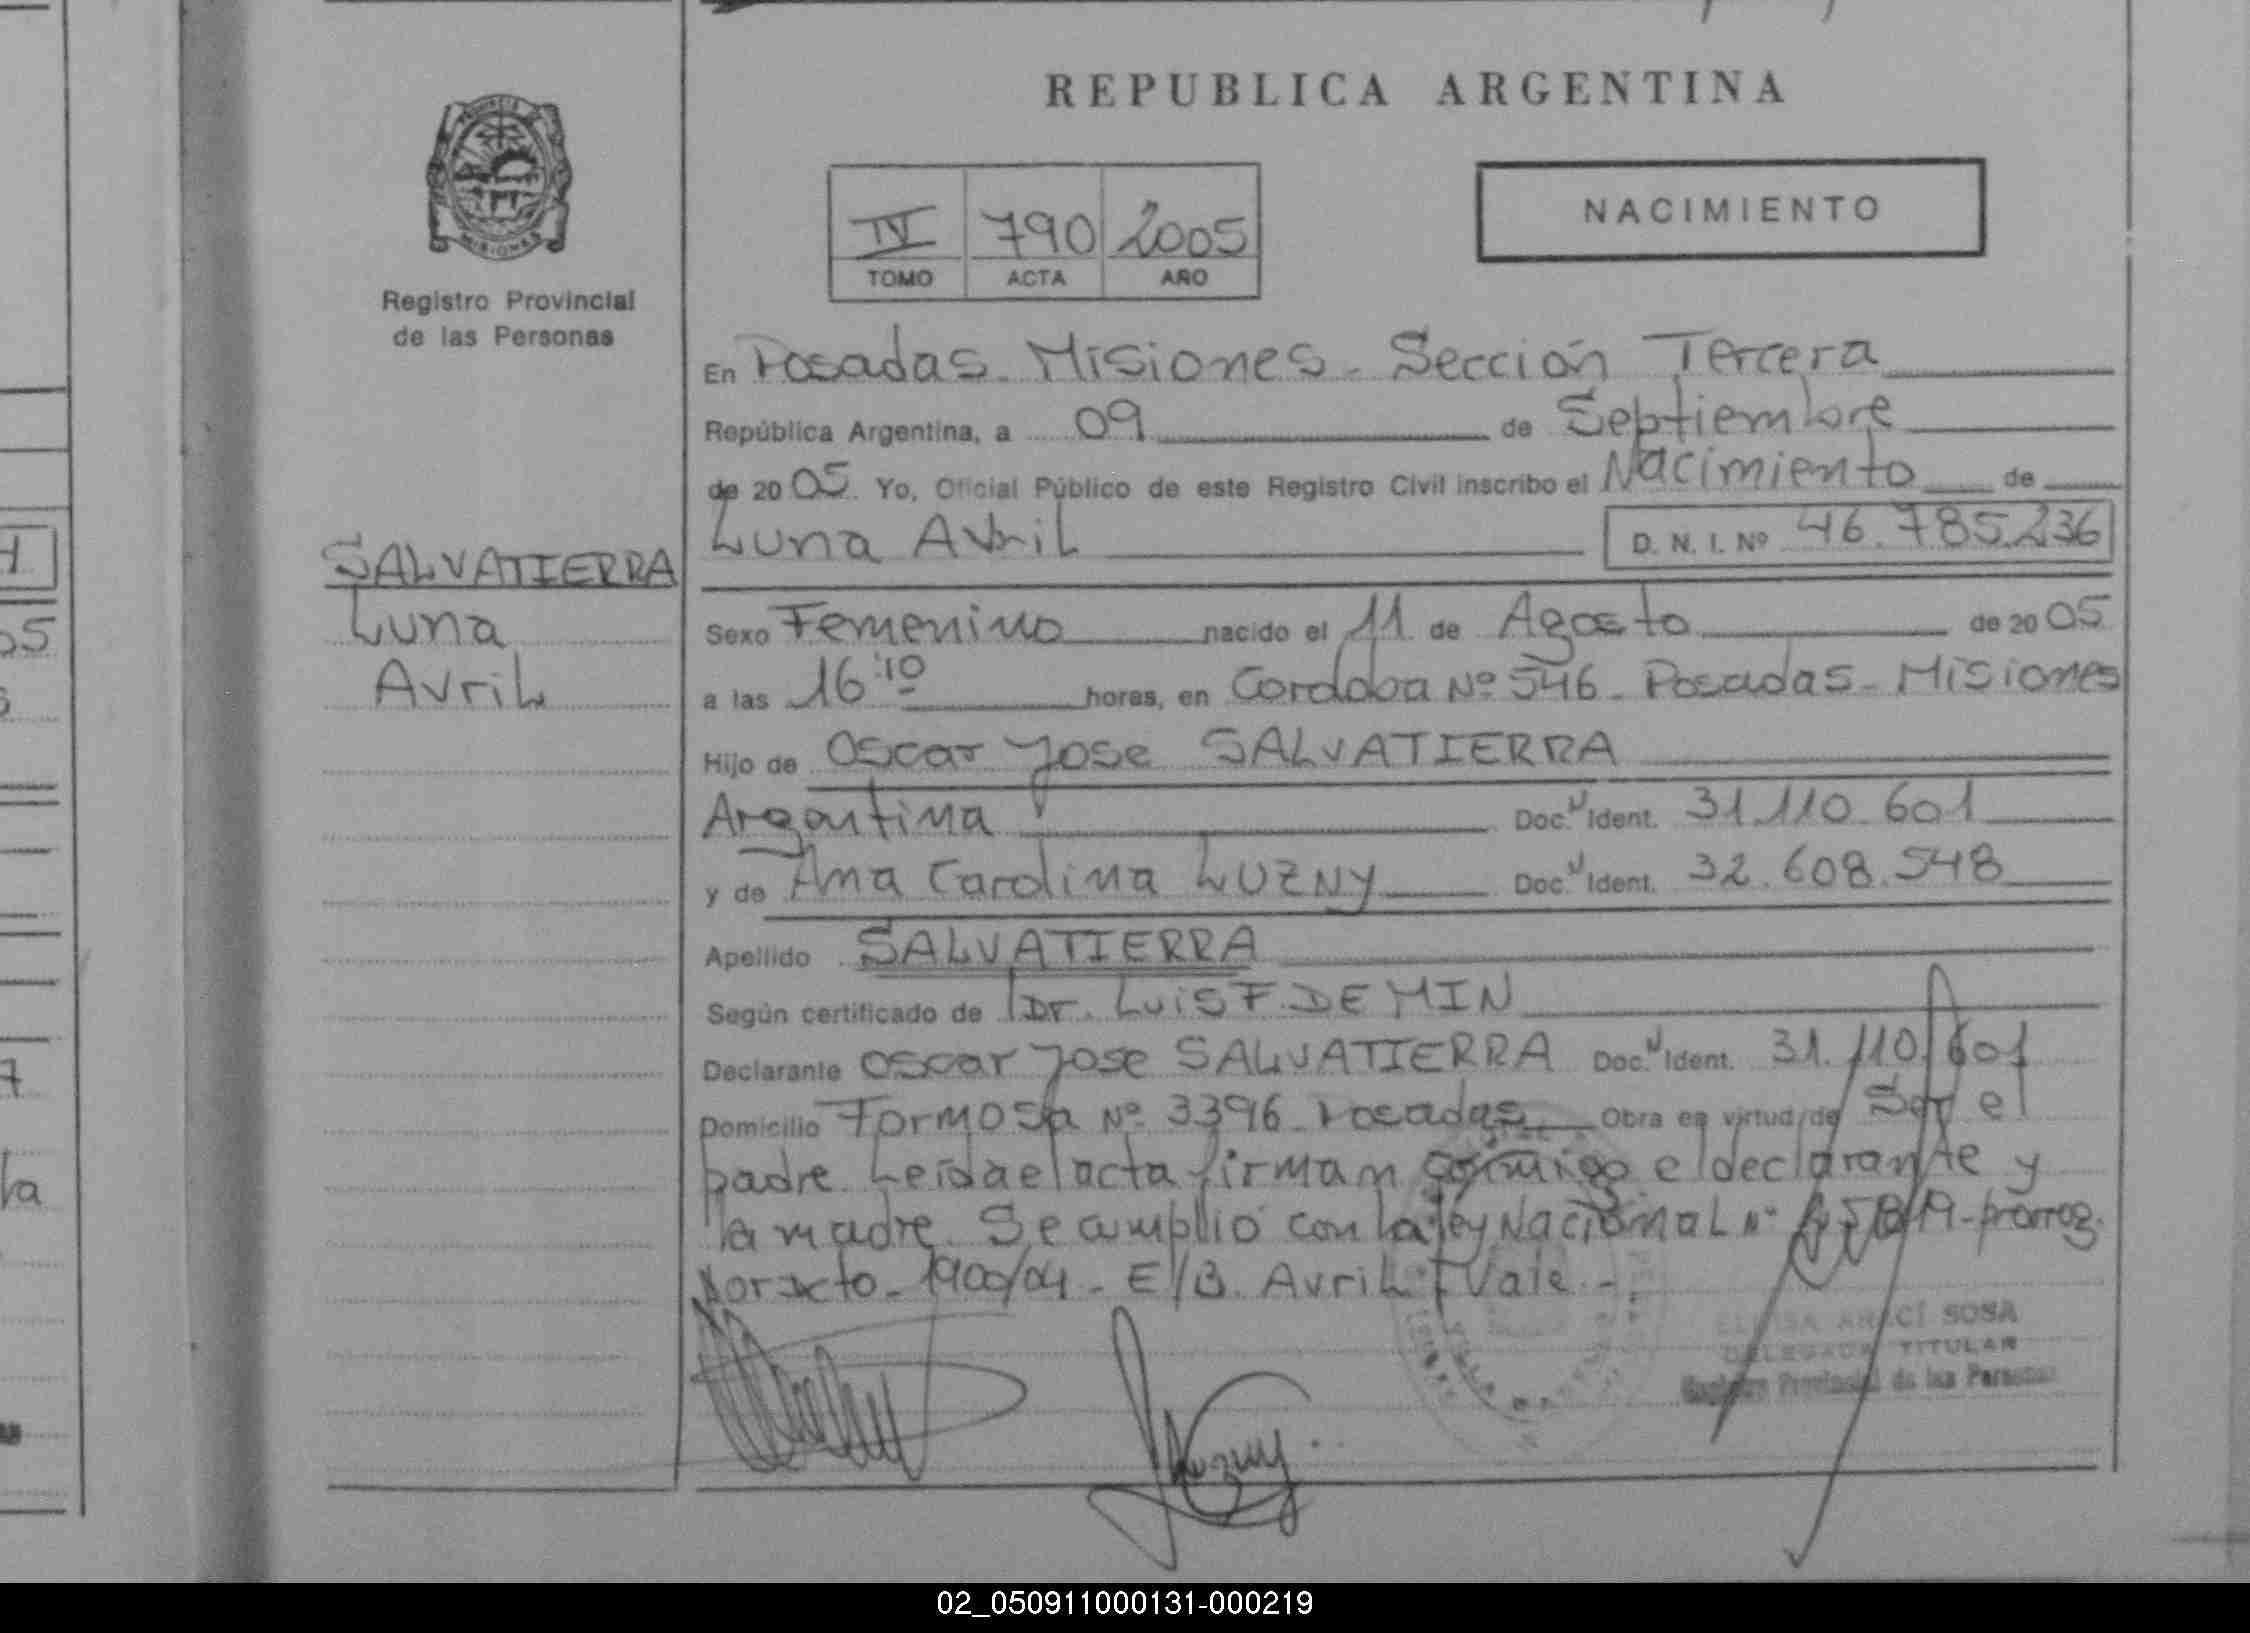 REPUBLICA ARGENTINA
PROVINCIA
MISIONES
Registro Provincial
de las Personas
IV 790 2005
TOMO ACTA AÑO
NACIMIENTO
En Posadas - Misiones - Sección Tercera
República Argentina, a 09 de Septiembre
de 2005. Yo, Oficial Público de este Registro Civil inscribo el Nacimiento de
Luna Avril D. N. I. Nº 46.785.236
SALVATIERRA
Luna
Avril
Sexo Femenino nacido el 11 de Agosto de 2005
a las 16:10 horas, en Cordoba Nº 546 - Posadas - Misiones
Hijo de Oscar Jose SALVATIERRA
Argentina Doc. Ident. 31.110.601
y de Ana Carolina LUZNY Doc. Ident. 32.608.548
Apellido SALVATIERRA
Según certificado de Dr. Luis F. DE MIN
Declarante Oscar Jose SALVATIERRA Doc. Ident. 31.110.601
Domicilio Formosa Nº 3396 - Posadas Obra en virtud de Ser el
padre. Leida el acta firman conmigo el declarante y
la madre. Se cumplió con la ley Nacional Nº
1900/04 - E/B. Avril: Vale -
Luzny
SOSA
DELEGADA TITULAR
Registro Provincial de las Personas
02_050911000131-000219